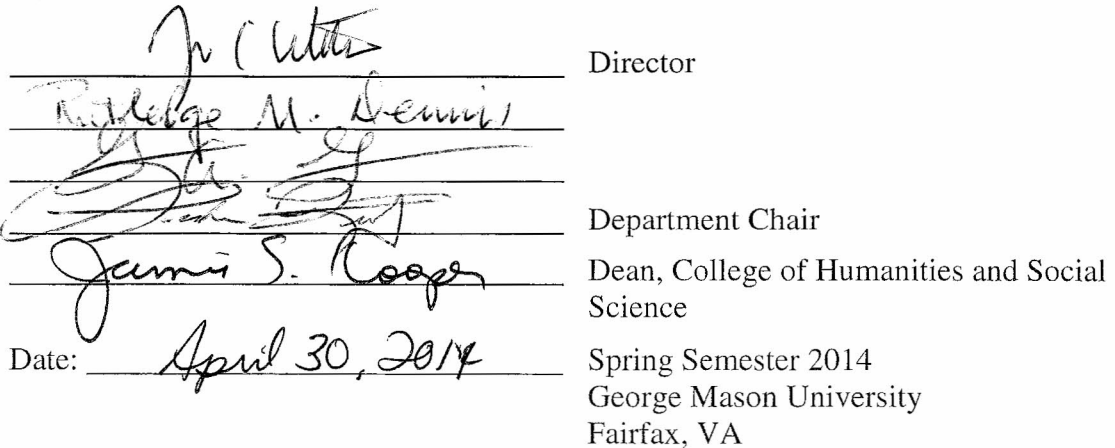 Director
Rutledge M. Dennis
Department Chair
S. Cooper Dean, College of Humanities and Social
Science
Date: April 30, 2014 Spring Semester 2014
George Mason University
Fairfax, VA